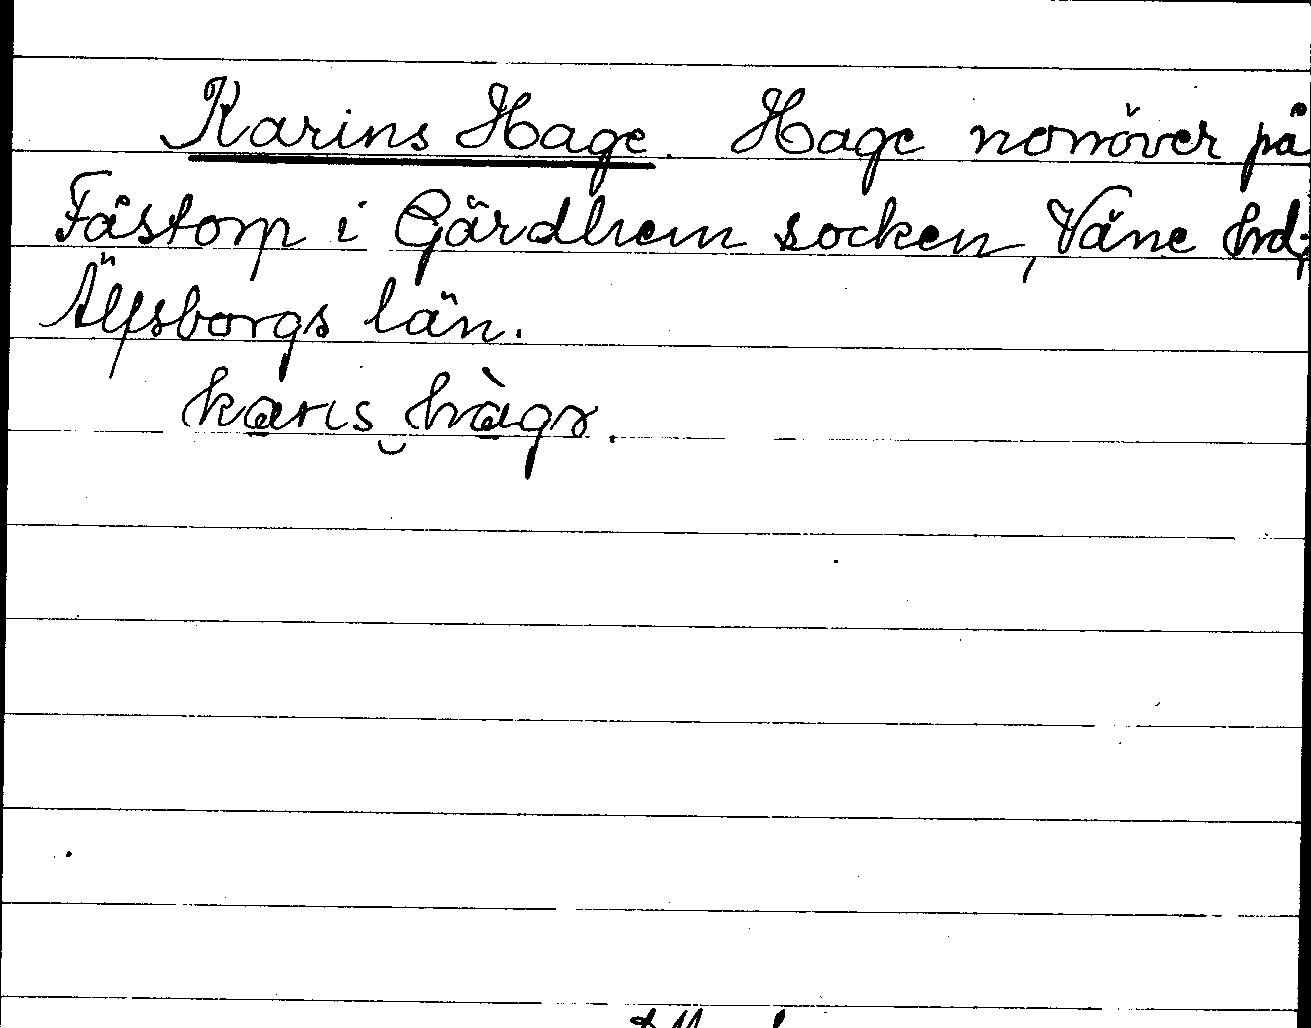 Karins Hage. Hage norröver på
Fåstorp i Gärdhem socken, Väne hrd;
Älfsborgs län.
karıs‿hàgɤ.